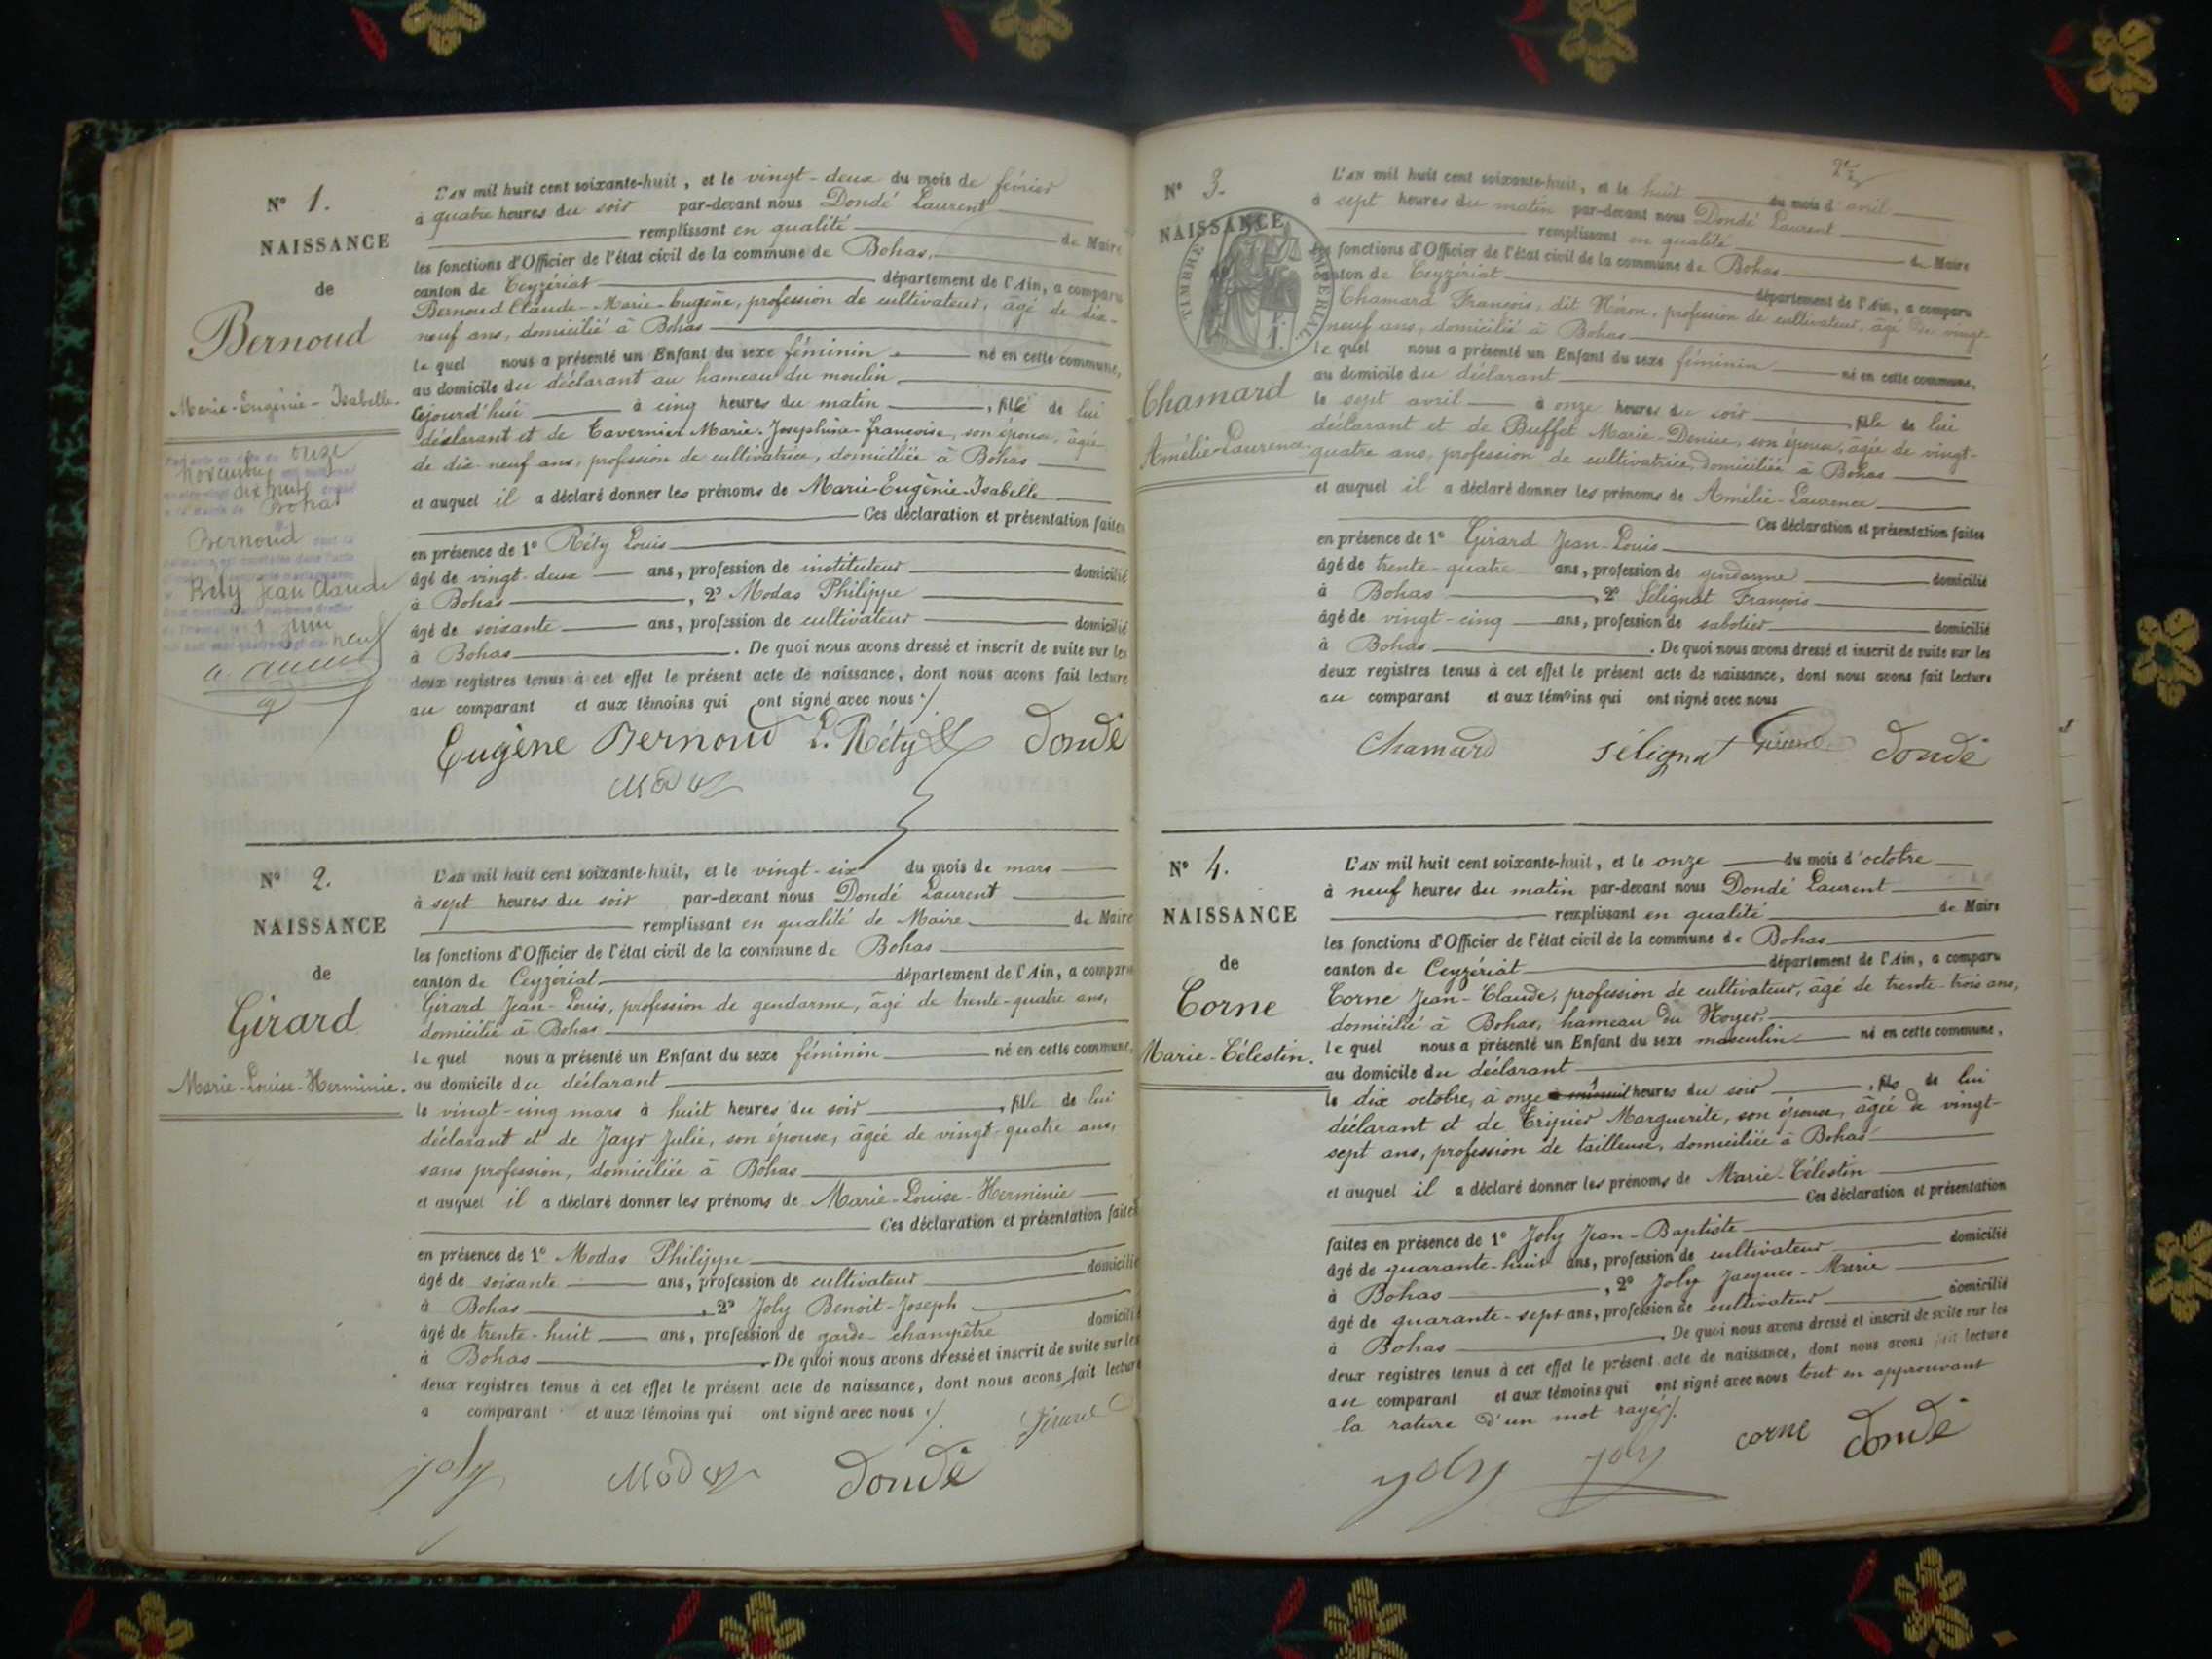 N° 1.
NAISSANCE
de
Bernoud
Marie-Eugénie-Isabelle.
onze
novembre
dix huit
Bohas
Bernoud
Rély Jean Claude
L'AN mil huit cent soixante-huit, et le vingt-deux du mois de février
à quatre heures du soir par-devant nous Dondé Laurent
remplissant en qualité de Maire
les fonctions d'Officier de l'état civil de la commune de Bohas,
canton de Ceyzériat département de l'Ain, a comparu
Bernoud Claude-Marie-Eugène, profession de cultivateur, âgé de dix-
neuf ans, domicilié à Bohas
le quel nous a présenté un Enfant du sexe féminin né en cette commune,
au domicile du déclarant au hameau du moulin
Cejourd'hui à cinq heures du matin, fille de lui
déclarant et de Tavernier Marie-Joséphine-françoise, son épouse, âgée
de dix-neuf ans, profession de cultivatrice, domiciliée à Bohas
et auquel il a déclaré donner les prénoms de Marie-Eugénie-Isabelle
Ces déclaration et présentation faites
en présence de 1° Réty Louis
âgé de vingt-deux ans, profession de instituteur domicilié
à Bohas, 2° Modas Philippe
âgé de soixante ans, profession de cultivateur domicilié
à Bohas. De quoi nous avons dressé et inscrit de suite sur les
deux registres tenus à cet effet le présent acte de naissance, dont nous avons fait lecture
au comparant et aux témoins qui ont signé avec nous ./.
Eugène Bernoud L. Réty Dondé
Modas
N° 2.
NAISSANCE
de
Girard
Marie-Louise-Herminie.
L'AN mil huit cent soixante-huit, et le vingt-six du mois de mars
à sept heures du soir par-devant nous Dondé Laurent
remplissant en qualité de Maire de Maire
les fonctions d'Officier de l'état civil de la commune de Bohas
canton de Ceyzériat département de l'Ain, a comparu
Girard Jean-Louis, profession de gendarme, âgé de trente-quatre ans,
domicilié à Bohas
le quel nous a présenté un Enfant du sexe féminin né en cette commune,
au domicile du déclarant
le vingt-cinq mars à huit heures du soir, fille de lui
déclarant et de Jayr Julie, son épouse, âgée de vingt-quatre ans,
sans profession, domiciliée à Bohas
et auquel il a déclaré donner les prénoms de Marie-Louise-Herminie
Ces déclaration et présentation faites
en présence de 1° Modas Philippe
âgé de soixante ans, profession de cultivateur domicilié
à Bohas, 2° Joly Benoit-Joseph
âgé de trente-huit ans, profession de garde-champêtre domicilié
à Bohas. De quoi nous avons dressé et inscrit de suite sur les
deux registres tenus à cet effet le présent acte de naissance, dont nous avons fait lecture
a comparant et aux témoins qui ont signé avec nous ./.
Girard
Joly Modas Dondé
2
N° 3.
NAISSANCE
TIMBRE IMPÉRIAL
Chamard
Amélie-Laurence.
L'AN mil huit cent soixante-huit, et le huit du mois d'avril
à sept heures du matin par-devant nous Dondé Laurent
remplissant en qualité de Maire
les fonctions d'Officier de l'état civil de la commune de Bohas
canton de Ceyzériat département de l'Ain, a comparu
Chamard François, dit Néron, profession de cultivateur, âgé de vingt-
neuf ans, domicilié à Bohas
le quel nous a présenté un Enfant du sexe féminin né en cette commune,
au domicile du déclarant
le sept avril à onze heures du soir, fille de lui
déclarant et de Buffet Marie-Denise, son épouse, âgée de vingt-
quatre ans, profession de cultivatrice, domiciliée à Bohas
et auquel il a déclaré donner les prénoms de Amélie-Laurence
Ces déclaration et présentation faites
en présence de 1° Girard Jean-Louis
âgé de trente-quatre ans, profession de gendarme domicilié
à Bohas, 2° Sélignat François
âgé de vingt-cinq ans, profession de sabotier domicilié
à Bohas. De quoi nous avons dressé et inscrit de suite sur les
deux registres tenus à cet effet le présent acte de naissance, dont nous avons fait lecture
au comparant et aux témoins qui ont signé avec nous
Chamard Sélignat Girard Dondé
N° 4.
NAISSANCE
de
Corne
Marie-Célestin.
L'AN mil huit cent soixante-huit, et le onze du mois d'octobre
à neuf heures du matin par-devant nous Dondé Laurent
remplissant en qualité de Maire
les fonctions d'Officier de l'état civil de la commune de Bohas
canton de Ceyzériat département de l'Ain, a comparu
Corne Jean-Claude, profession de cultivateur, âgé de trente-trois ans,
domicilié à Bohas, hameau du Noyer,
le quel nous a présenté un Enfant du sexe masculin né en cette commune,
au domicile du déclarant
le dix octobre, à onze minuit heures du soir, fils de lui
déclarant et de Marguerite, son épouse, âgée de vingt-
sept ans, profession de tailleuse, domiciliée à Bohas
et auquel il a déclaré donner les prénoms de Marie-Célestin
Ces déclaration et présentation
faites en présence de 1° Joly Jean-Baptiste
âgé de quarante-huit ans, profession de cultivateur domicilié
à Bohas, 2° Joly Jacques-Marie
âgé de quarante-sept ans, profession de cultivateur domicilié
à Bohas. De quoi nous avons dressé et inscrit de suite sur les
deux registres tenus à cet effet le présent acte de naissance, dont nous avons fait lecture
au comparant et aux témoins qui ont signé avec nous tout en approuvant
la rature d'un mot rayé ./.
Joly Joly Corne Dondé